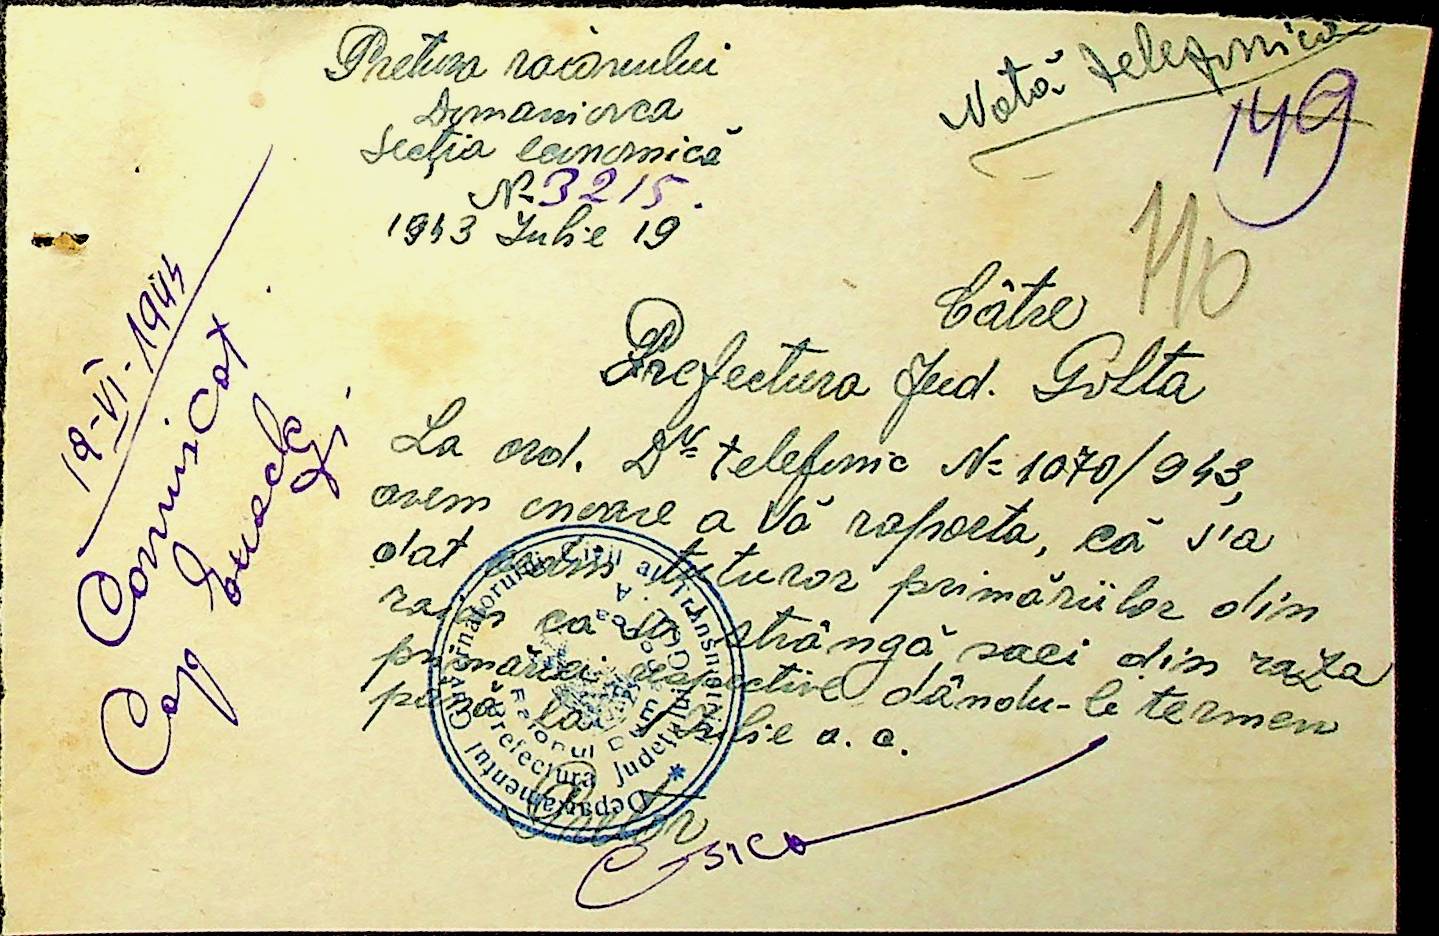 Pretura raionului
Domaniovca
Secția economică
Nr 3215.
1943 Iulie 19
Notă telefonică
149
110
Către
Prefectura Jud. Golta
La ord. Dv. telefonic Nr 1070/943,
avem onoare a Vă raporta, că s'a
dat ordin tuturor primăriilor din
raion ca să strângă saci din raza
primăriei respective dându-le termen
până la Iulie a. c.
Pretor
19-VI-1944
Comunicat
Cap
Guvernatorului Civil al Transnistriei
Departamentul
Prefectura Județului Golta
Raionul